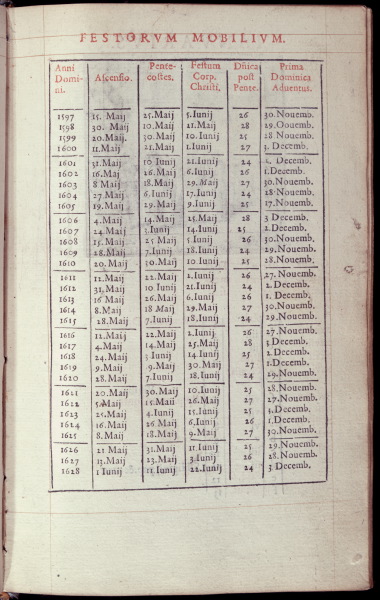 FESTORVM MOBILIVM.
Anni Domini. Ascensio. Pentecostes. Festum Corp. Christi. Dñicæ post Pente. Prima Dominica Aduentus.
1597 15. Maij 25. Maij 5. Iunij 26 30. Nouemb.
1598 30. Maij 10. Maij 21. Maij 28 29. Nouemb.
1599 20. Maij. 30. Maij 10. Iunij 25 28 Nouemb.
1600 11. Maij 21. Maij 1. Iunij 27 3. Decemb.
1601 31. Maij 10 Iunij 21. Iunij 24 2. Decemb.
1602 16. Maj 26 Maij 6. Iunij 26 1. Decemb.
1603 8 Maij 18. Maij 29. Maij 27 30. Nouemb.
1604 27 Maij 6. Iunij 17. Iunij 24 28. Nouemb.
1605 19. Maij 29. Maij 9. Iunij 25 27. Nouemb.
1606 4. Maij 14. Maij 25. Maij 28 3 Decemb.
1607 24 Maij 3. Iunij 14. Iunij 25 2. Decemb.
1608 15. Maij 25 Maij 5 Iunij 26 30. Nouemb.
1609 28. Maij 7. Iunij 18 Iunij 24 29. Nouemb.
1610 20. Maij 30. Maij 10 Iunij 25 28. Nouemb.
1611 12. Maij 22. Maij 2. Iunij 26 27. Nouemb.
1612 31. Maij 10 Iunij 21. Iunij 24 2. Decemb.
1613 16 Maij 26. Maij 6. Iunij 26 1. Decemb.
1614 8. Maij 18 Maij 29. Maij 27 30. Nouemb.
1615 28. Maij 7. Iunij 18. Iunij 24 29. Nouemb.
1616 12. Maij 22. Maij 2. Iunij 26 27. Nouemb.
1617 4. Maij 14. Maij 25. Maij 28 3 Decemb.
1618 24. Maij 3 Iunij 14 Iunij 25 2. Decemb.
1619 9. Maij 9. Maij 30. Maij 27 1. Decemb.
1620 28. Maij 7. Iunij 18. Iunij 24 29. Nouemb.
1621 20. Maij 30. Maij 10. Iunij 25 28. Nouemb.
1622 5. Maij 15. Maij 26. Maij 27 27. Nouemb.
1623 25. Maij 4. Iunij 15. Iunij 25 3. Decemb.
1624 16. Maij 26 Maij 6. Iunij 26 1. Decemb.
1625 8. Maij 18. Maij 9. Maij 27 30. Nouemb.
1626 21 Maij 31. Maij 11 Iunij 25 29. Nouemb.
1627 13. Maij 23. Maij 3. Iunij 26 28. Nouemb.
1628 1 Iunij 11. Iunij 22. Iunij 24 3 Decemb.